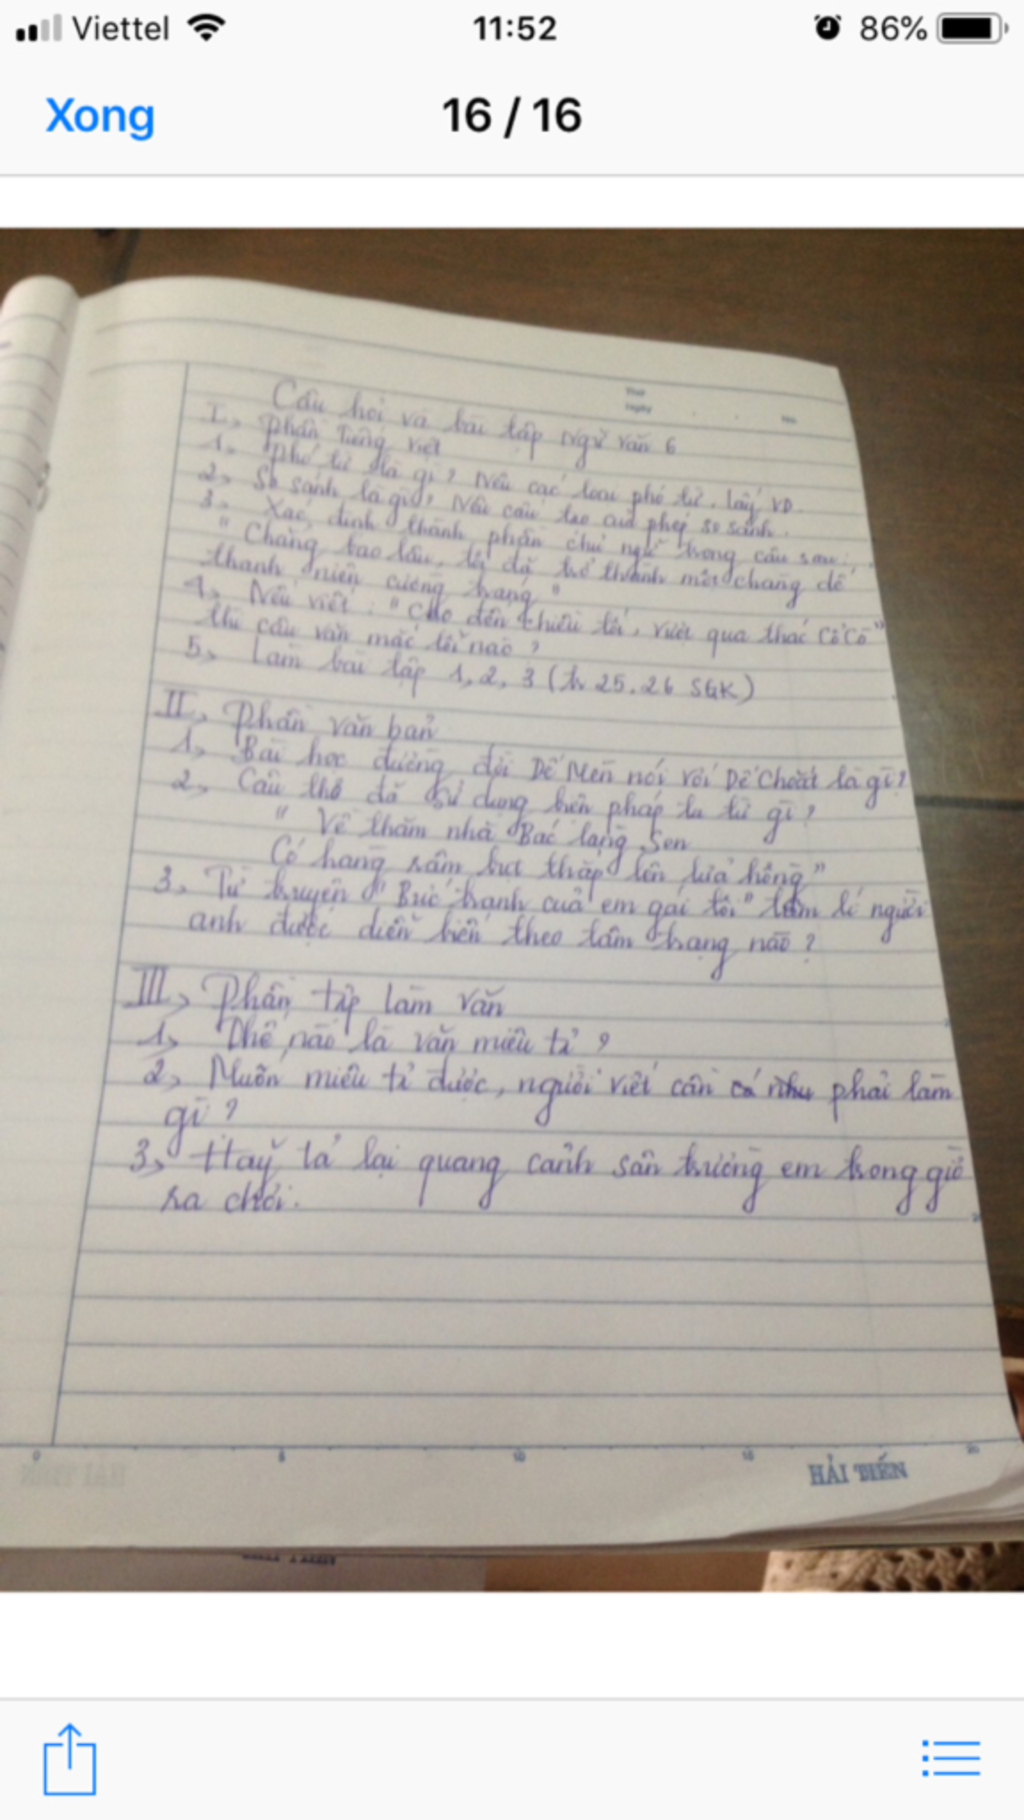 Viettel 11:52 86%
Xong 16 / 16
Thứ
Ngày No.
Câu hỏi và bài tập Ngữ văn 6
I, Phần Tiếng Việt
1, Phó từ là gì? Nêu các loại phó từ, lấy VD.
2, So sánh là gì? Nêu cấu tạo của phép so sánh.
3, Xác định thành phần chủ ngữ trong câu sau:
"Chẳng bao lâu, tôi đã trở thành một chàng dế
thanh niên cường tráng"
4, Nếu viết: "Cho đến chiều tối, vượt qua thác Cổ Cò"
thì câu văn mắc lỗi nào?
5, Làm bài tập 1, 2, 3 (tr 25.26 SGK)
II, Phần văn bản
1, Bài học đường đời Dế Mèn nói với Dế Choắt là gì?
2, Câu thơ đã sử dụng biện pháp tu từ gì?
"Về thăm nhà Bác làng Sen
Có hàng râm bụt thắp lên lửa hồng"
3, Từ truyện "Bức tranh của em gái tôi" tâm lí người
anh được diễn biến theo tâm trạng nào?
III, Phần tập làm văn
1, Thế nào là văn miêu tả?
2, Muốn miêu tả được, người viết cần phải làm
gì?
3, Hãy tả lại quang cảnh sân trường em trong giờ
ra chơi.
0 5 10 15 20
HẢI TIẾN